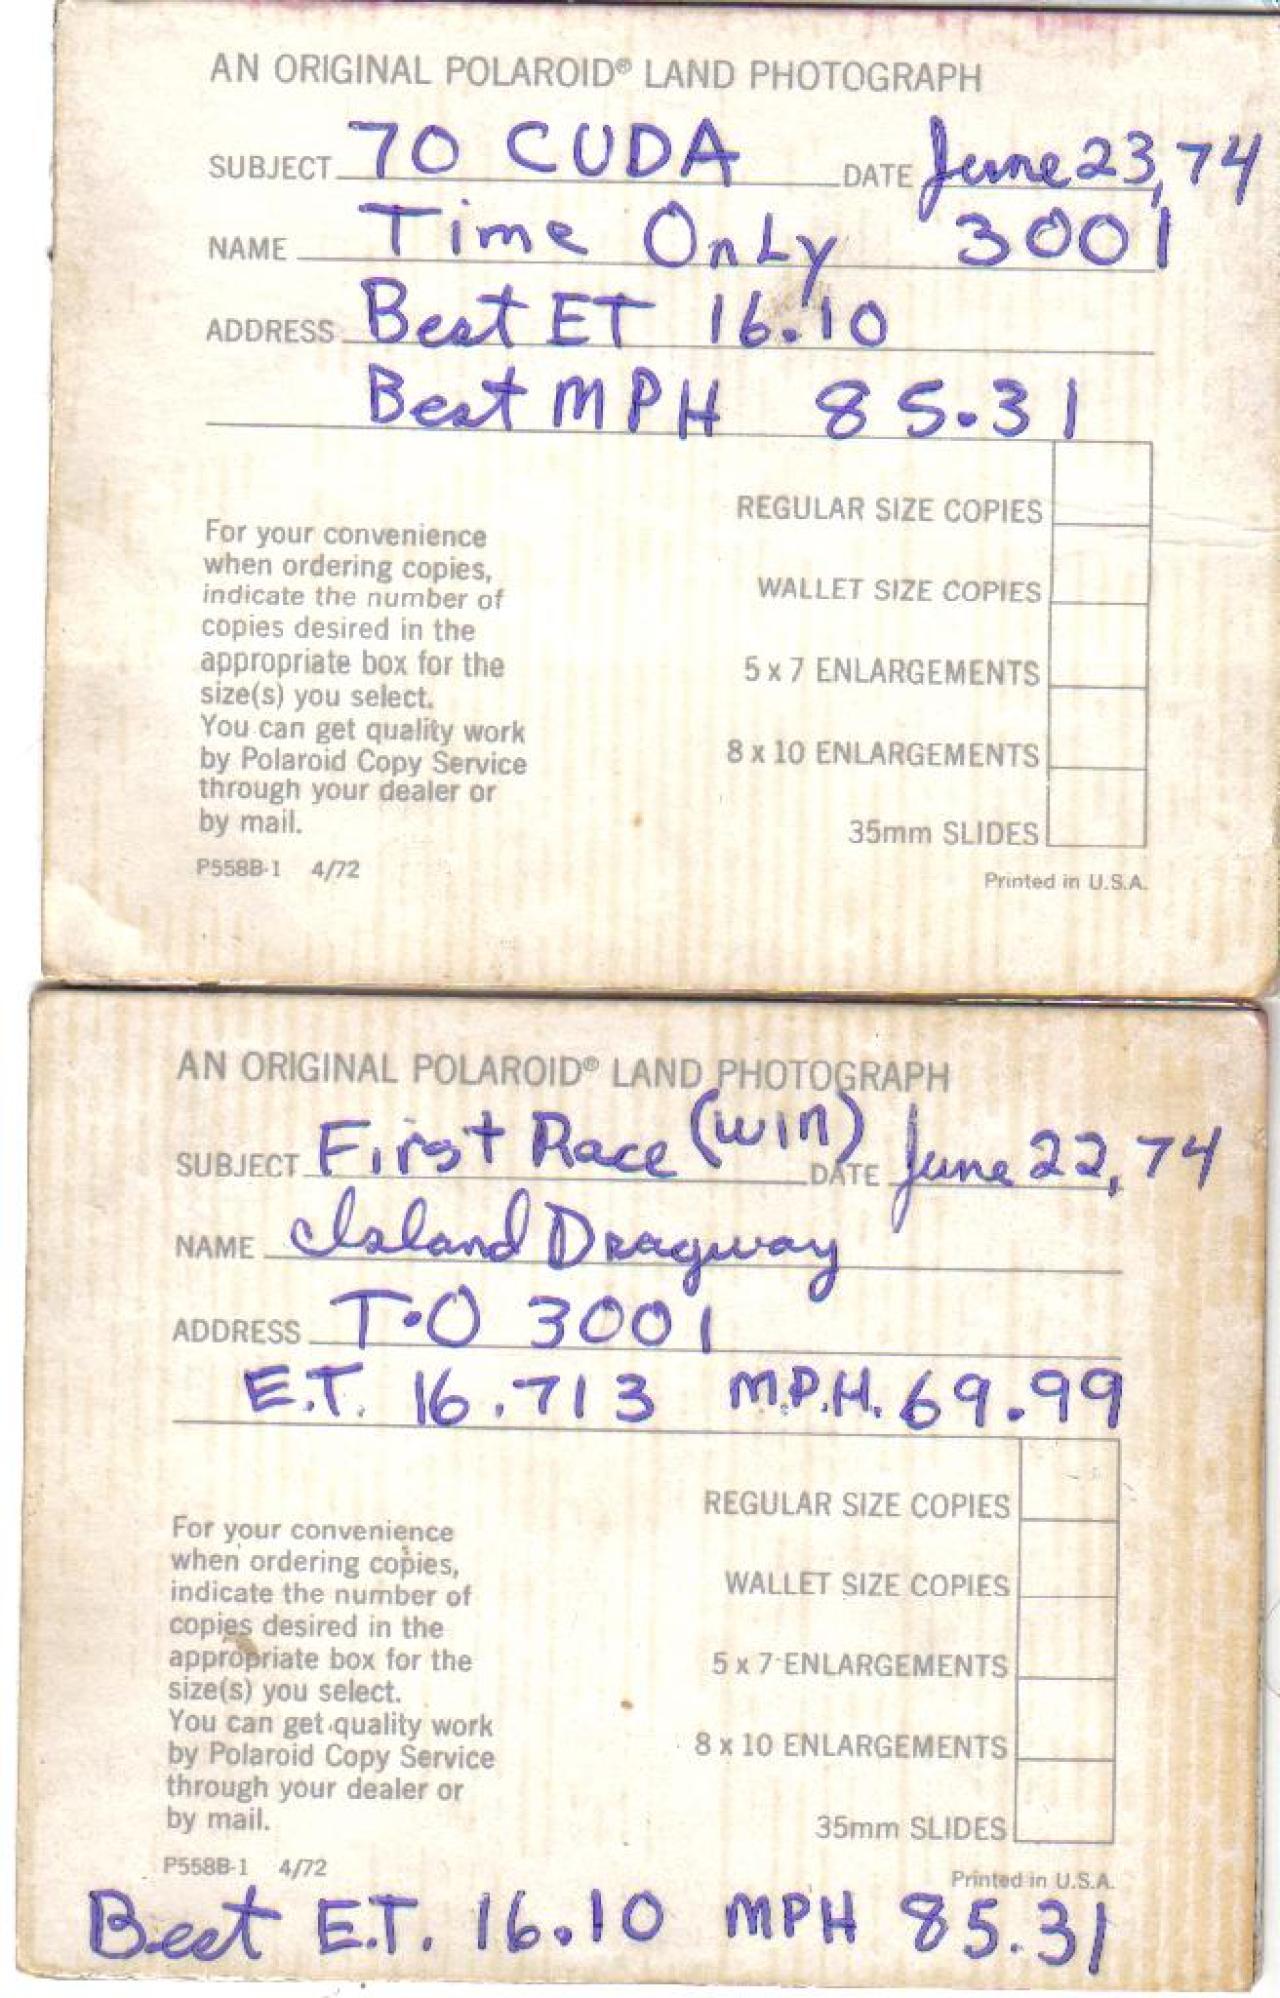 AN ORIGINAL POLAROID® LAND PHOTOGRAPH
SUBJECT 70 CUDA DATE June 23, 74
NAME Time OnLy 3001
ADDRESS Best ET 16.10
Best MPH 85.31
REGULAR SIZE COPIES
WALLET SIZE COPIES
5 x 7 ENLARGEMENTS
8 x 10 ENLARGEMENTS
35mm SLIDES
For your convenience
when ordering copies,
indicate the number of
copies desired in the
appropriate box for the
size(s) you select.
You can get quality work
by Polaroid Copy Service
through your dealer or
by mail.
P558B-1 4/72
Printed in U.S.A.
AN ORIGINAL POLAROID® LAND PHOTOGRAPH
SUBJECT First Race (WIN) DATE June 22, 74
NAME Island Dragway
ADDRESS T.O 3001
E.T. 16.713 M.P.H. 69.99
REGULAR SIZE COPIES
WALLET SIZE COPIES
5 x 7 ENLARGEMENTS
8 x 10 ENLARGEMENTS
35mm SLIDES
For your convenience
when ordering copies,
indicate the number of
copies desired in the
appropriate box for the
size(s) you select.
You can get quality work
by Polaroid Copy Service
through your dealer or
by mail.
P558B-1 4/72
Printed in U.S.A.
Best E.T. 16.10 MPH 85.31